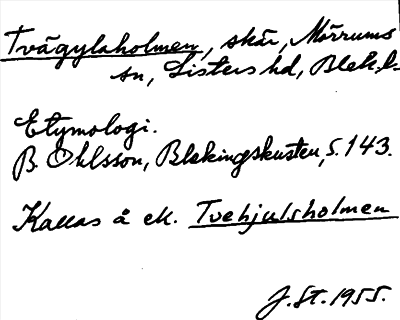 Tvägylaholmen, skär, Mörrums
sn, Listers hd, Blek.l.
Etymologi.
B. Ohlsson, Blekingskusten, S. 143.
Kallas å ek. Tvehjulsholmen
J. St. 1955.